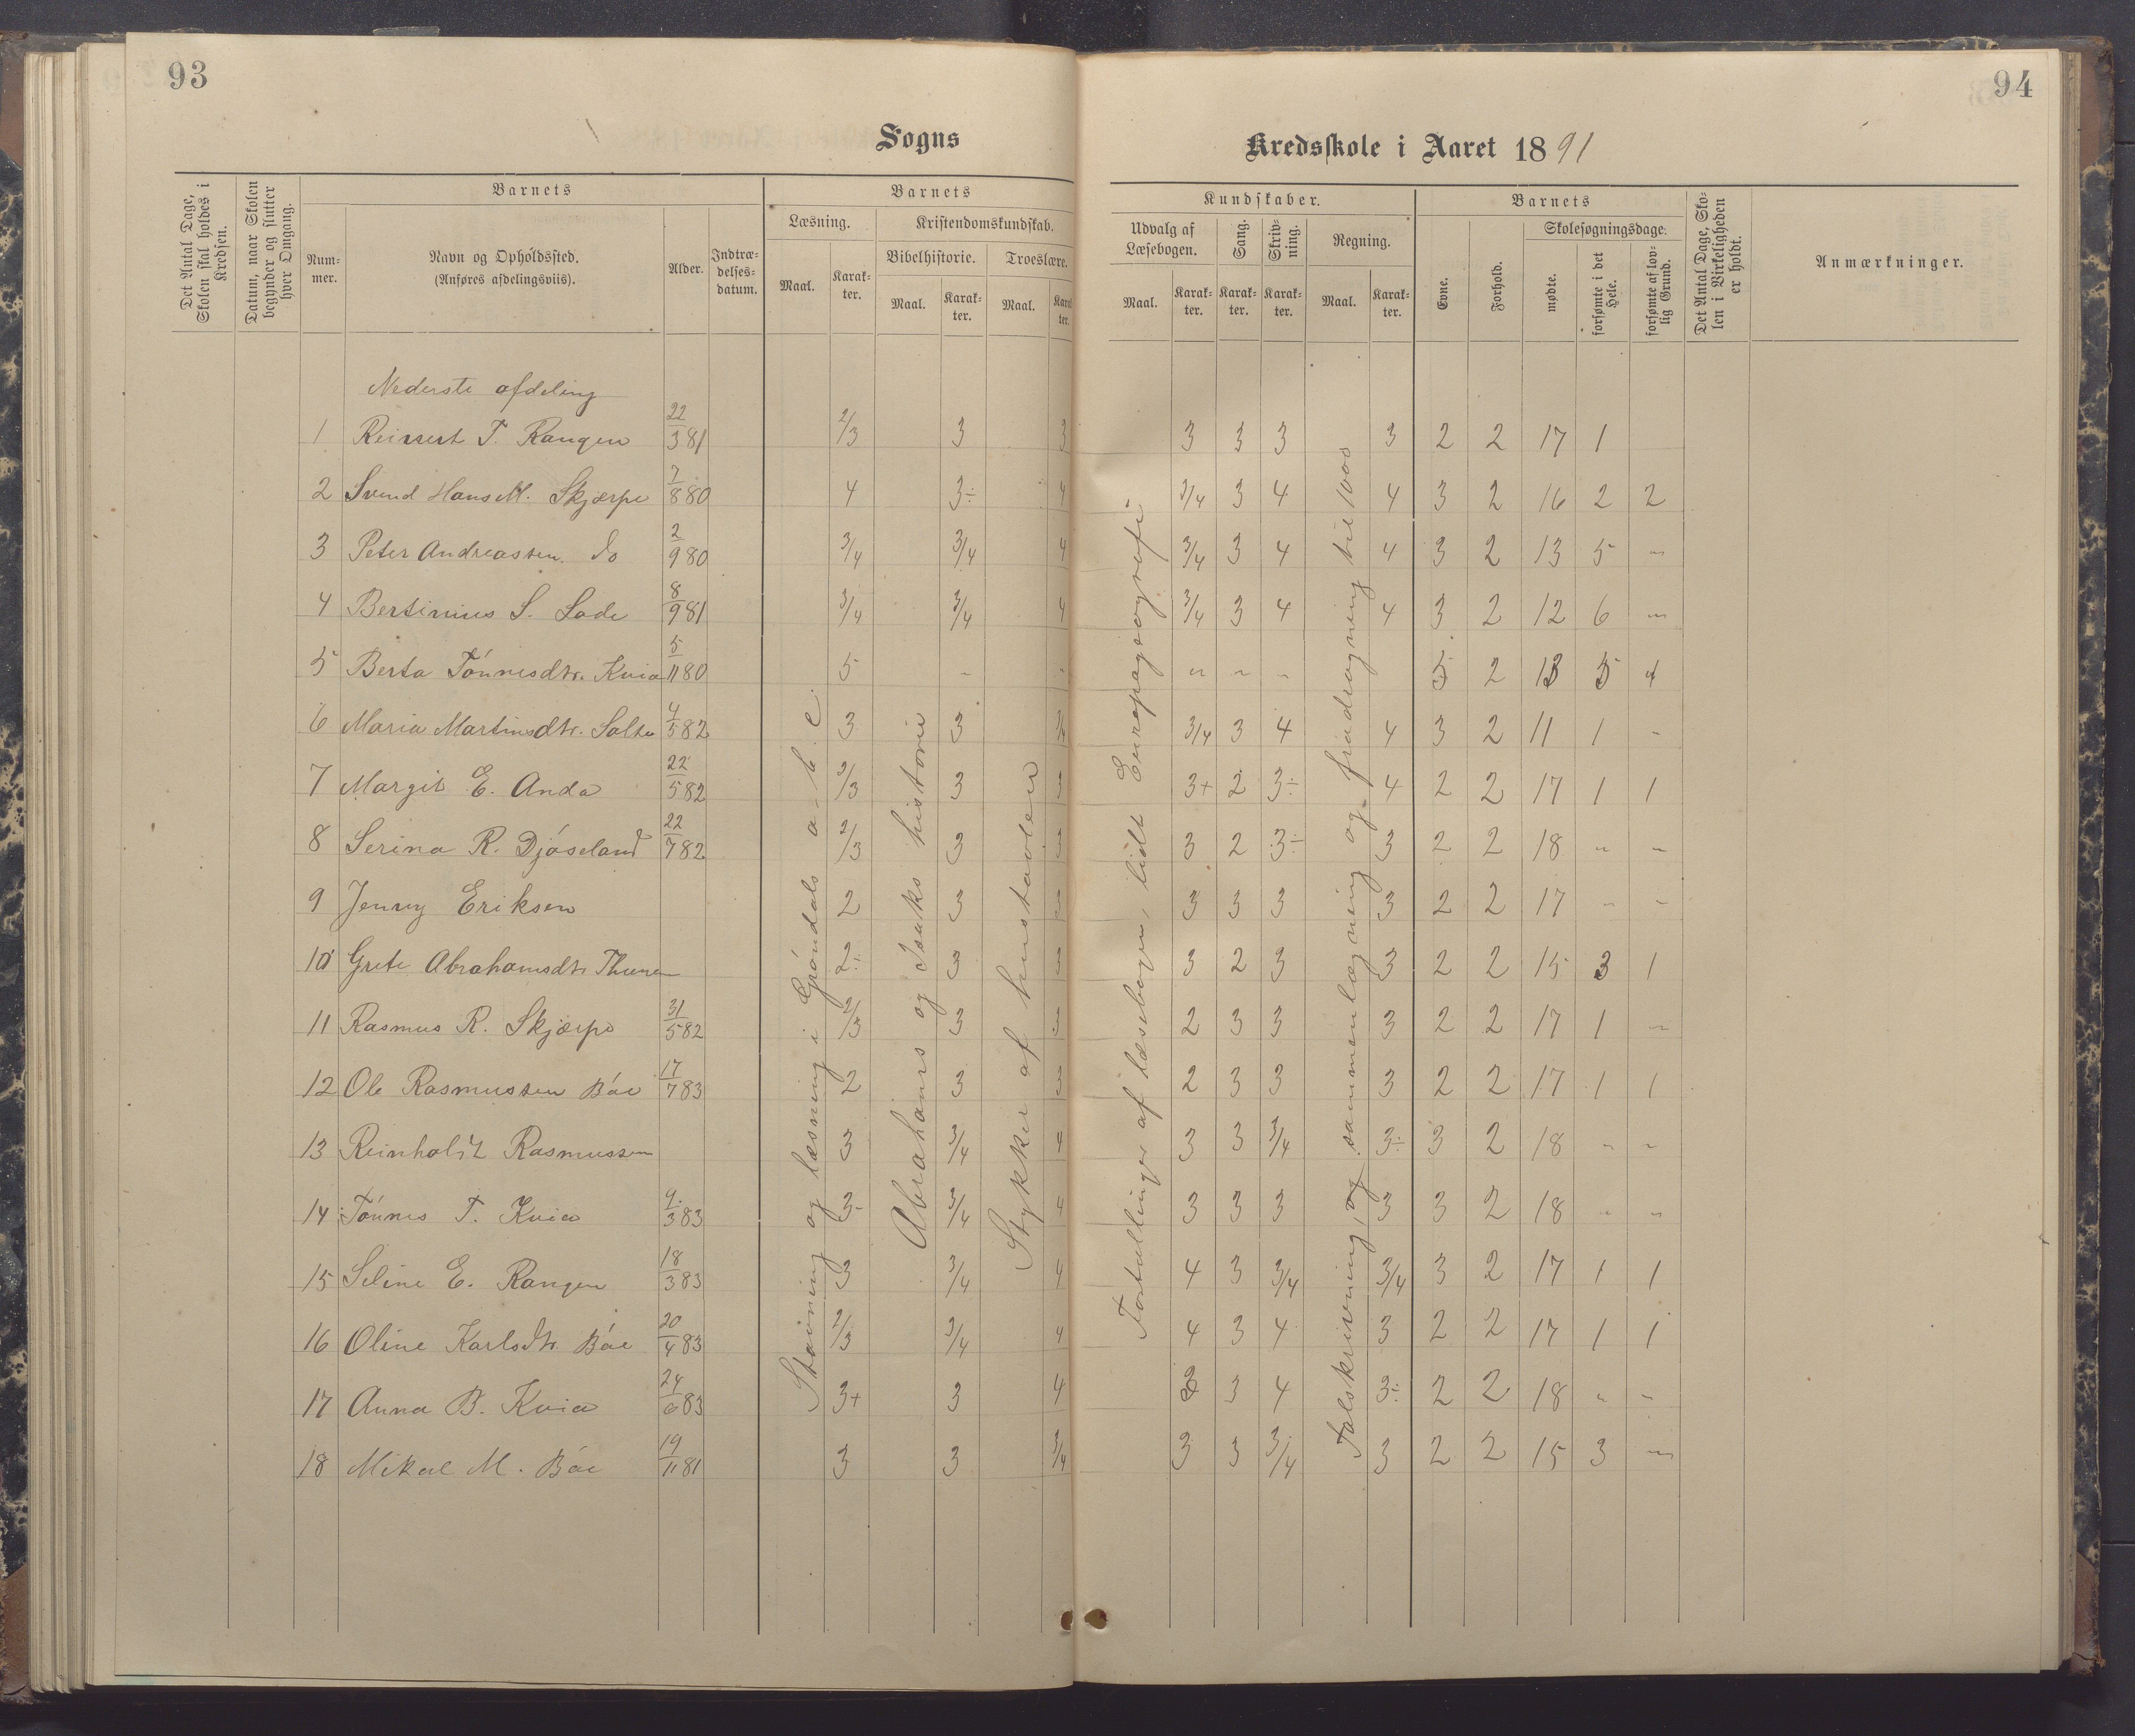 93
94
Sogns
Kredsskole i Aaret 1891
Det Antal Dage, Skolen skal holdes i Kredsen.
Datum, naar Skolen begynder og slutter hver Omgang.
Barnets
Num-mer.
Navn og Opholdssted.
(Anføres afdelingsviis).
Alder.
Indtræ-delses-datum.
Barnets
Læsning.
Maal.
Karak-ter.
Kristendomskundskab.
Bibelhistorie.
Maal.
Karak-ter.
Troeslære.
Maal.
Karak-ter.
Kundskaber.
Udvalg af Læsebogen.
Maal.
Karak-ter.
Sang.
Karak-ter.
Skriv-ning.
Karak-ter.
Regning.
Maal.
Karak-ter.
Barnets
Evne.
Forhold.
Skolesøgningsdage:
mødte.
forsømte i det Hele.
forsømte af lov-lig Grund.
Det Antal Dage, Sko-len i Virkeligheden er holdt.
Anmærkninger.
Nederste afdeling
1 Reinert T. Rangen 22/3 81 2/3 3 3 3 3 3 3 2 2 17 1
2 Svend Hans M. Skjærpe 7/8 80 4 3÷ 4 3/4 3 4 4 3 2 16 2 2
3 Peter Andreassen do 2/9 80 3/4 3/4 4 3/4 3 4 4 3 2 13 5 "
4 Bertinius S. Lode 8/9 81 3/4 3/4 4 3/4 3 4 4 3 2 12 6 "
5 Berta Tónnesdtr. Kvia 5/11 80 5 - - " " - 5 2 13 5 4
6 Maria Martinsdtr. Salte 4/5 82 3 3 3/4 3/4 3 4 4 3 2 11 1 -
7 Margit E. Anda 22/5 82 2/3 3 3 3+ 2 3÷ 4 2 2 17 1 1
8 Serina R. Djóseland 22/7 82 2/3 3 3 3 2 3÷ 3 2 2 18 " -
9 Jenny Eriksen 2 3 3 3 3 3 3 2 2 17 - -
10 Grete Abrahamsdtr Thunem 2÷ 3 3 3 2 3 3 2 2 15 3 1
11 Rasmus R. Skjærpe 31/5 82 2/3 3 3 2 3 3 3 2 2 17 1 -
12 Ole Rasmussen Bóe 17/7 83 2 3 3 2 3 3 3 2 2 17 1 1
13 Reinholdt Rasmussen 3 3/4 4 3 3 3/4 3÷ 3 2 18 - -
14 Tónnes T. Kvia 9/3 83 3- 3/4 4 3 3 3 3 3 2 18 - "
15 Seline E. Rangen 18/3 83 3 3/4 4 4 3 3/4 3/4 3 2 17 1 1
16 Oline Karlsdtr Bóe 20/4 83 2/3 3/4 4 4 3 4 3 2 2 17 1 1
17 Anna B. Kvia 24/6 83 3+ 3 4 3 3 4 3÷ 2 2 18 " -
18 Mikal M. Bóe 19/11 81 3 3 3/4 3 3 3/4 3 2 2 15 3 "
Stavning og læsning i Gróndals a-b-c.
Abrahams og Isaks historie
Stykker af hustavlen
Fortællinger af læsebogen, lidt Europageografi.
Talskrivning, og sammenlægning og fradragning til 1000